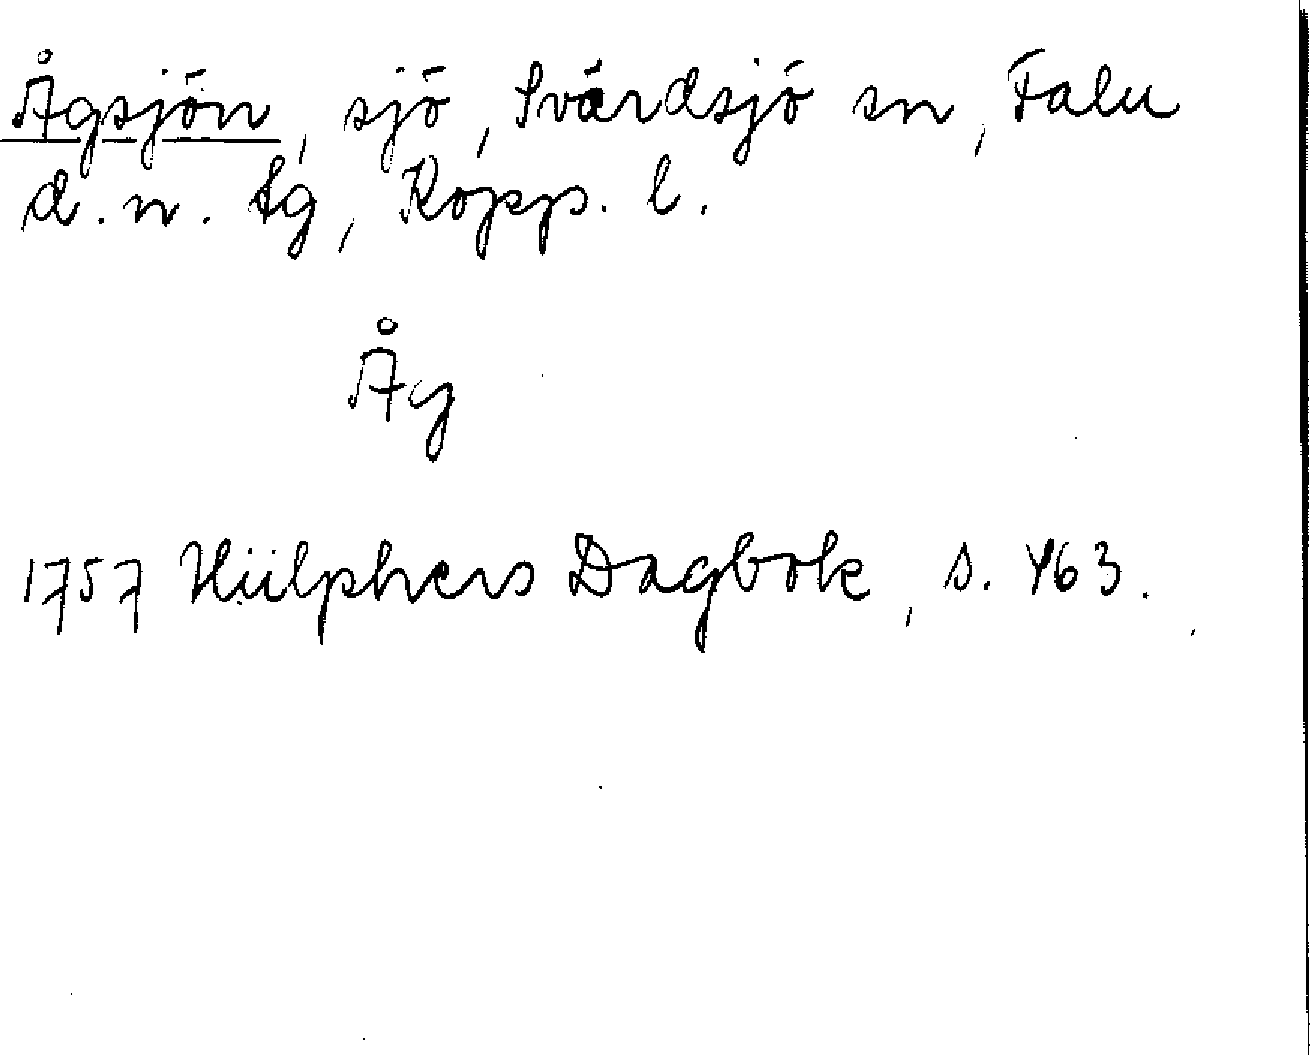 Ågsjön, sjö, Svärdsjö sn, Falu
d. n. tg, Kopp. l.
Åg
1757 Hülphers Dagbok, s. 463.